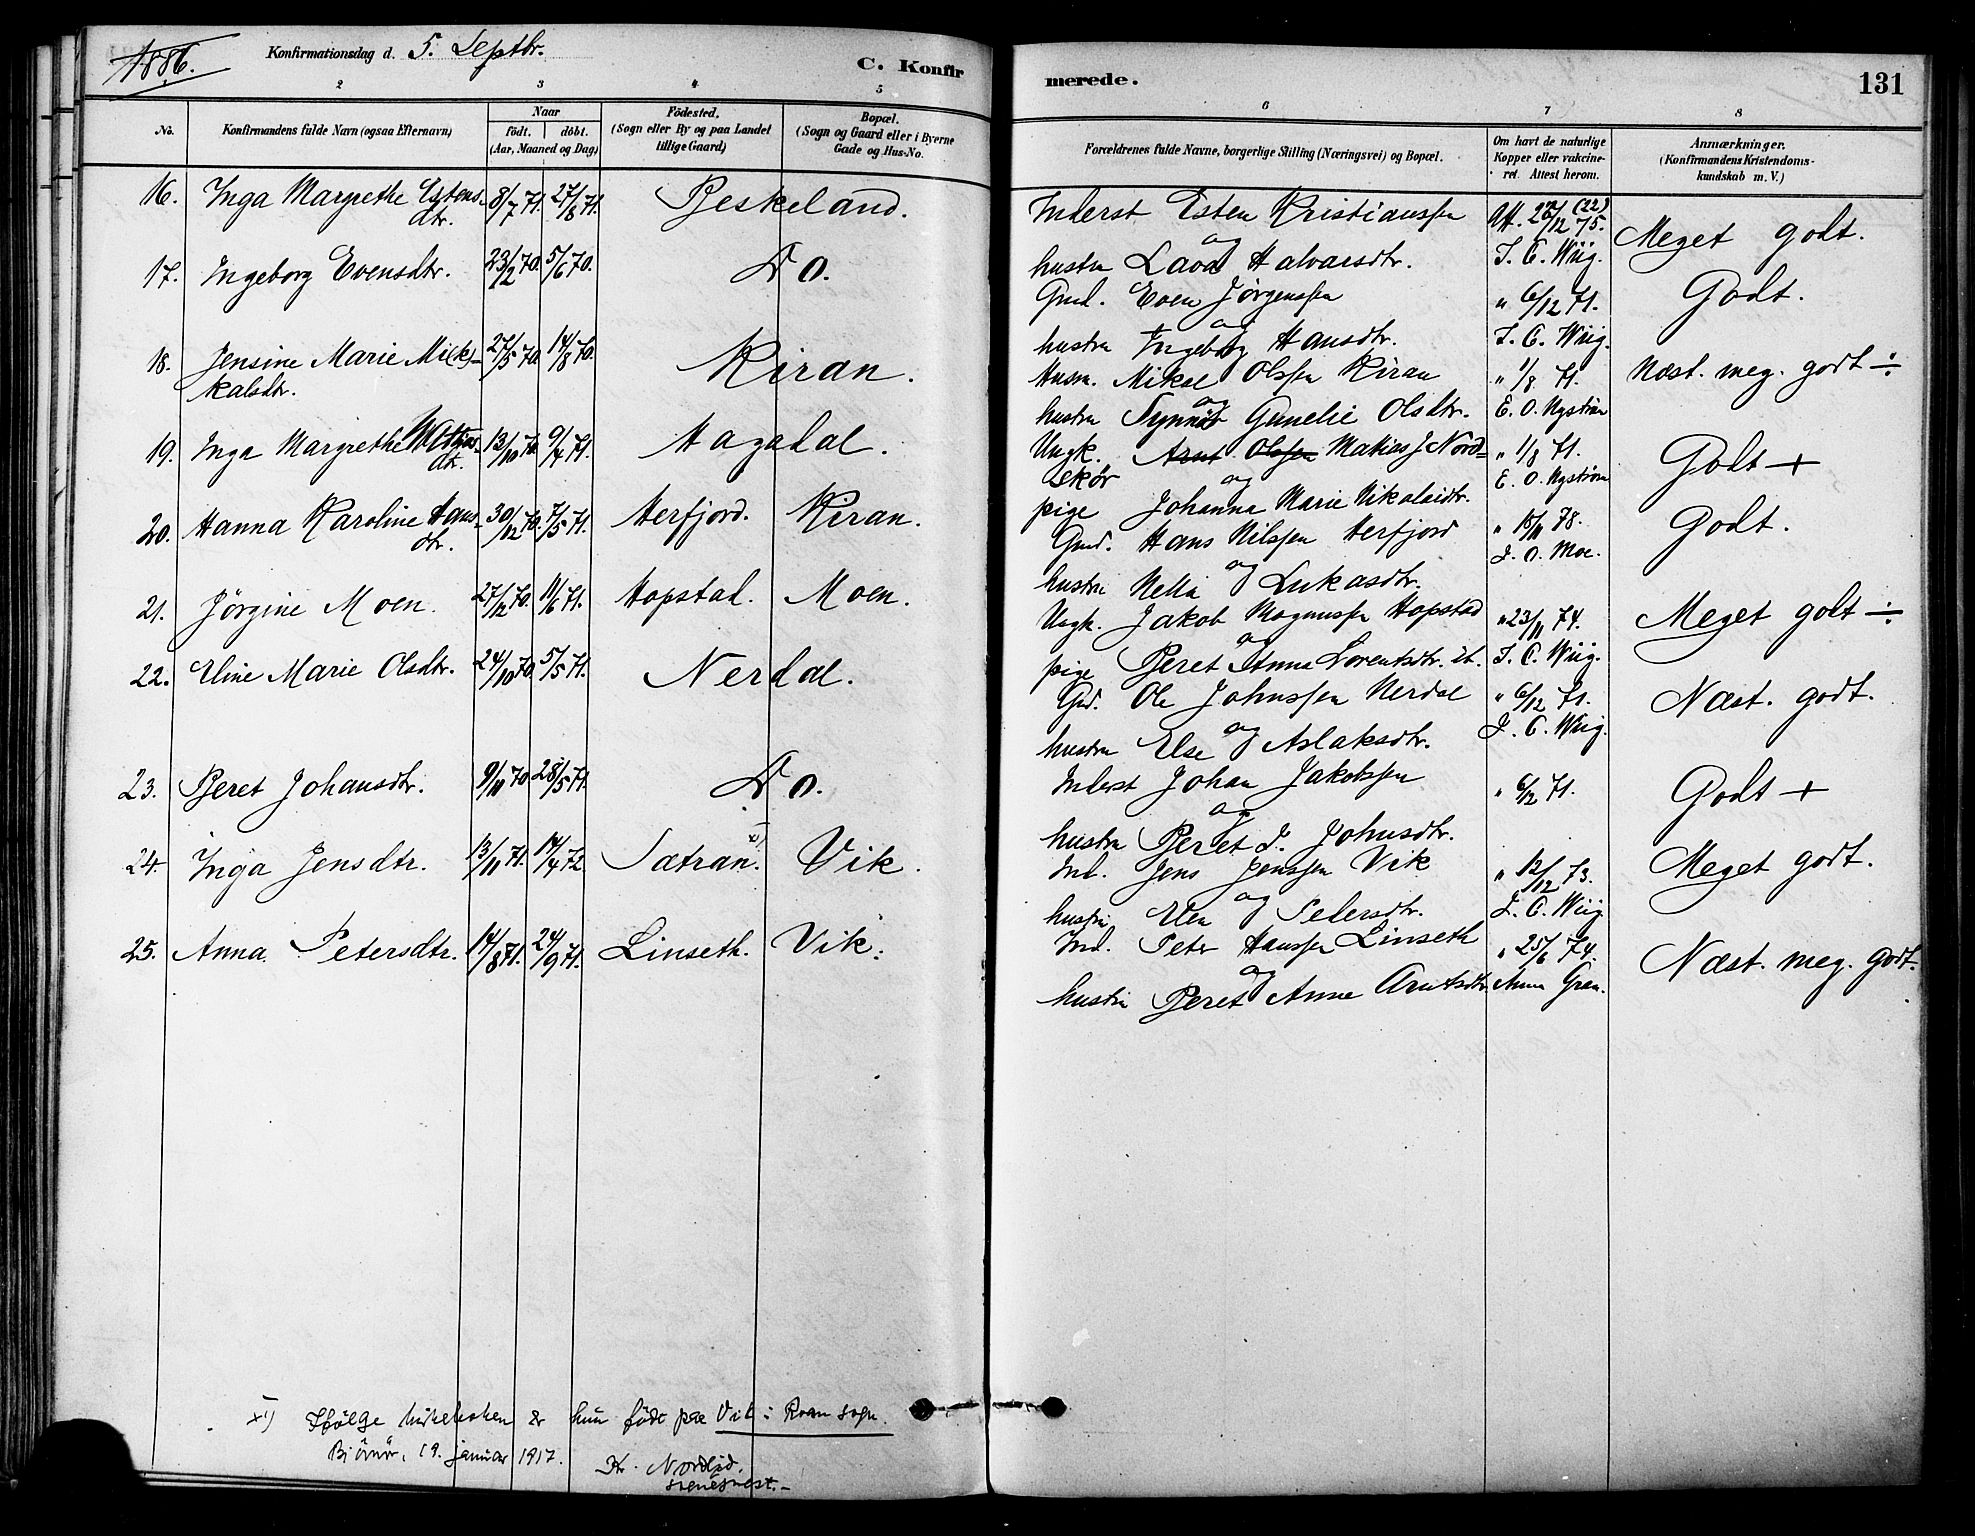 1886. Konfirmationsdag d. 5. Septbr. C. Konfir
merede. 131
2 3 4 5 6 7 8
No. Konfirmandens fulde Navn (ogsaa Efternavn) Naar født. døbt. (Aar, Maaned og Dag) Fødested. (Sogn eller By og paa Landet tillige Gaard) Bopæl. (Sogn og Gaard eller i Byerne Gade og Hus-No. Forældrenes fulde Navne, borgerlige Stilling (Næringsvei) og Bopæl. Om havt de naturlige Kopper eller vakcineret. Attest herom. Anmærkninger. (Konfirmandens Kristendomskundskab m. V.)
16. Inga Margrethe Estens- 8/7 71. 27/8 71. Beskeland. Inderst Esten Kristianssen Att. 27/12 75. (22) Meget godt.
dtr. og
hustru Lava Halvarsdtr. J. C. Wiig.
17. Ingeborg Evensdtr. 23/2 70. 5/6 70. Do. Gmd. Even Jørgenssen " 6/12 71. Godt.
og
hustru Ingeborg Hansdtr. J. C. Wiig.
18. Jensine Marie Mik- 27/5 70. 14/8 70. Kiran. Husm. Mikal Olssen Kiran " 1/8 71. Næst. meg. godt ÷
kalsdtr. og
hustru Synnøv Gunelie Olsdtr. E. O. Nystrøm
19. Inga Margrethe Mathias- 13/10 70. 9/4 71. Hagadal. Ungk. Arnt Olssen Matias J. Nord- " 1/8 71. Godt +
dtr. Lekør og E. O. Nystrøm
pige Johanna Marie Nikolaidtr.
20. Hanna Karoline Hans- 30/12 70. 7/5 71. Herfjord. Kiran. Gmd. Hans Nilssen Herfjord " 15/11 78. Godt.
dtr. og J. O. Moe.
hustru Nella Lukasdtr.
21. Jørgine Moen. 27/12 70. 11/6 71. Hopstad. Moen. Ungk. Jakob Magnussen Hopstad " 23/11 74. Meget godt ÷
og
pige Beret Anna Lorentsdtr. ib. J. C. Wiig.
22. Eline Marie Olsdtr. 24/10 70. 5/5 71. Nerdal. Gmd. Ole Johnssen Nerdal " 6/12 71. Næst. godt.
og J. C. Wiig.
hustru Else Aslaksdtr.
23. Beret Johansdtr. 9/11 70 28/5 71. Do. Inderst Johan Jakobssen " 6/12 71. Godt +
og
hustru Beret J. Johnsdtr.
24. Inga Jensdtr. 13/11 71. 14/4 72. Sætran. x) Vik. Ind. Jens Jenssen Vik " 12/12 73. Meget godt.
og
hustru Elen Petersdtr. J. C. Wiig.
25. Anna Petersdtr. 14/8 71. 24/9 71. Linseth. Vik. Ind. Peter Hanssen Linseth " 25/6 74. Næst. meg. godt.
og
hustru Beret Anna Arntsdtr. Anna Gran.
x) Ifølge kirkeboken er hun født paa Vik i Roan sogn.
Bjørnør, 19. januar 1917.
Kr. Nordlid,
sogneprest.